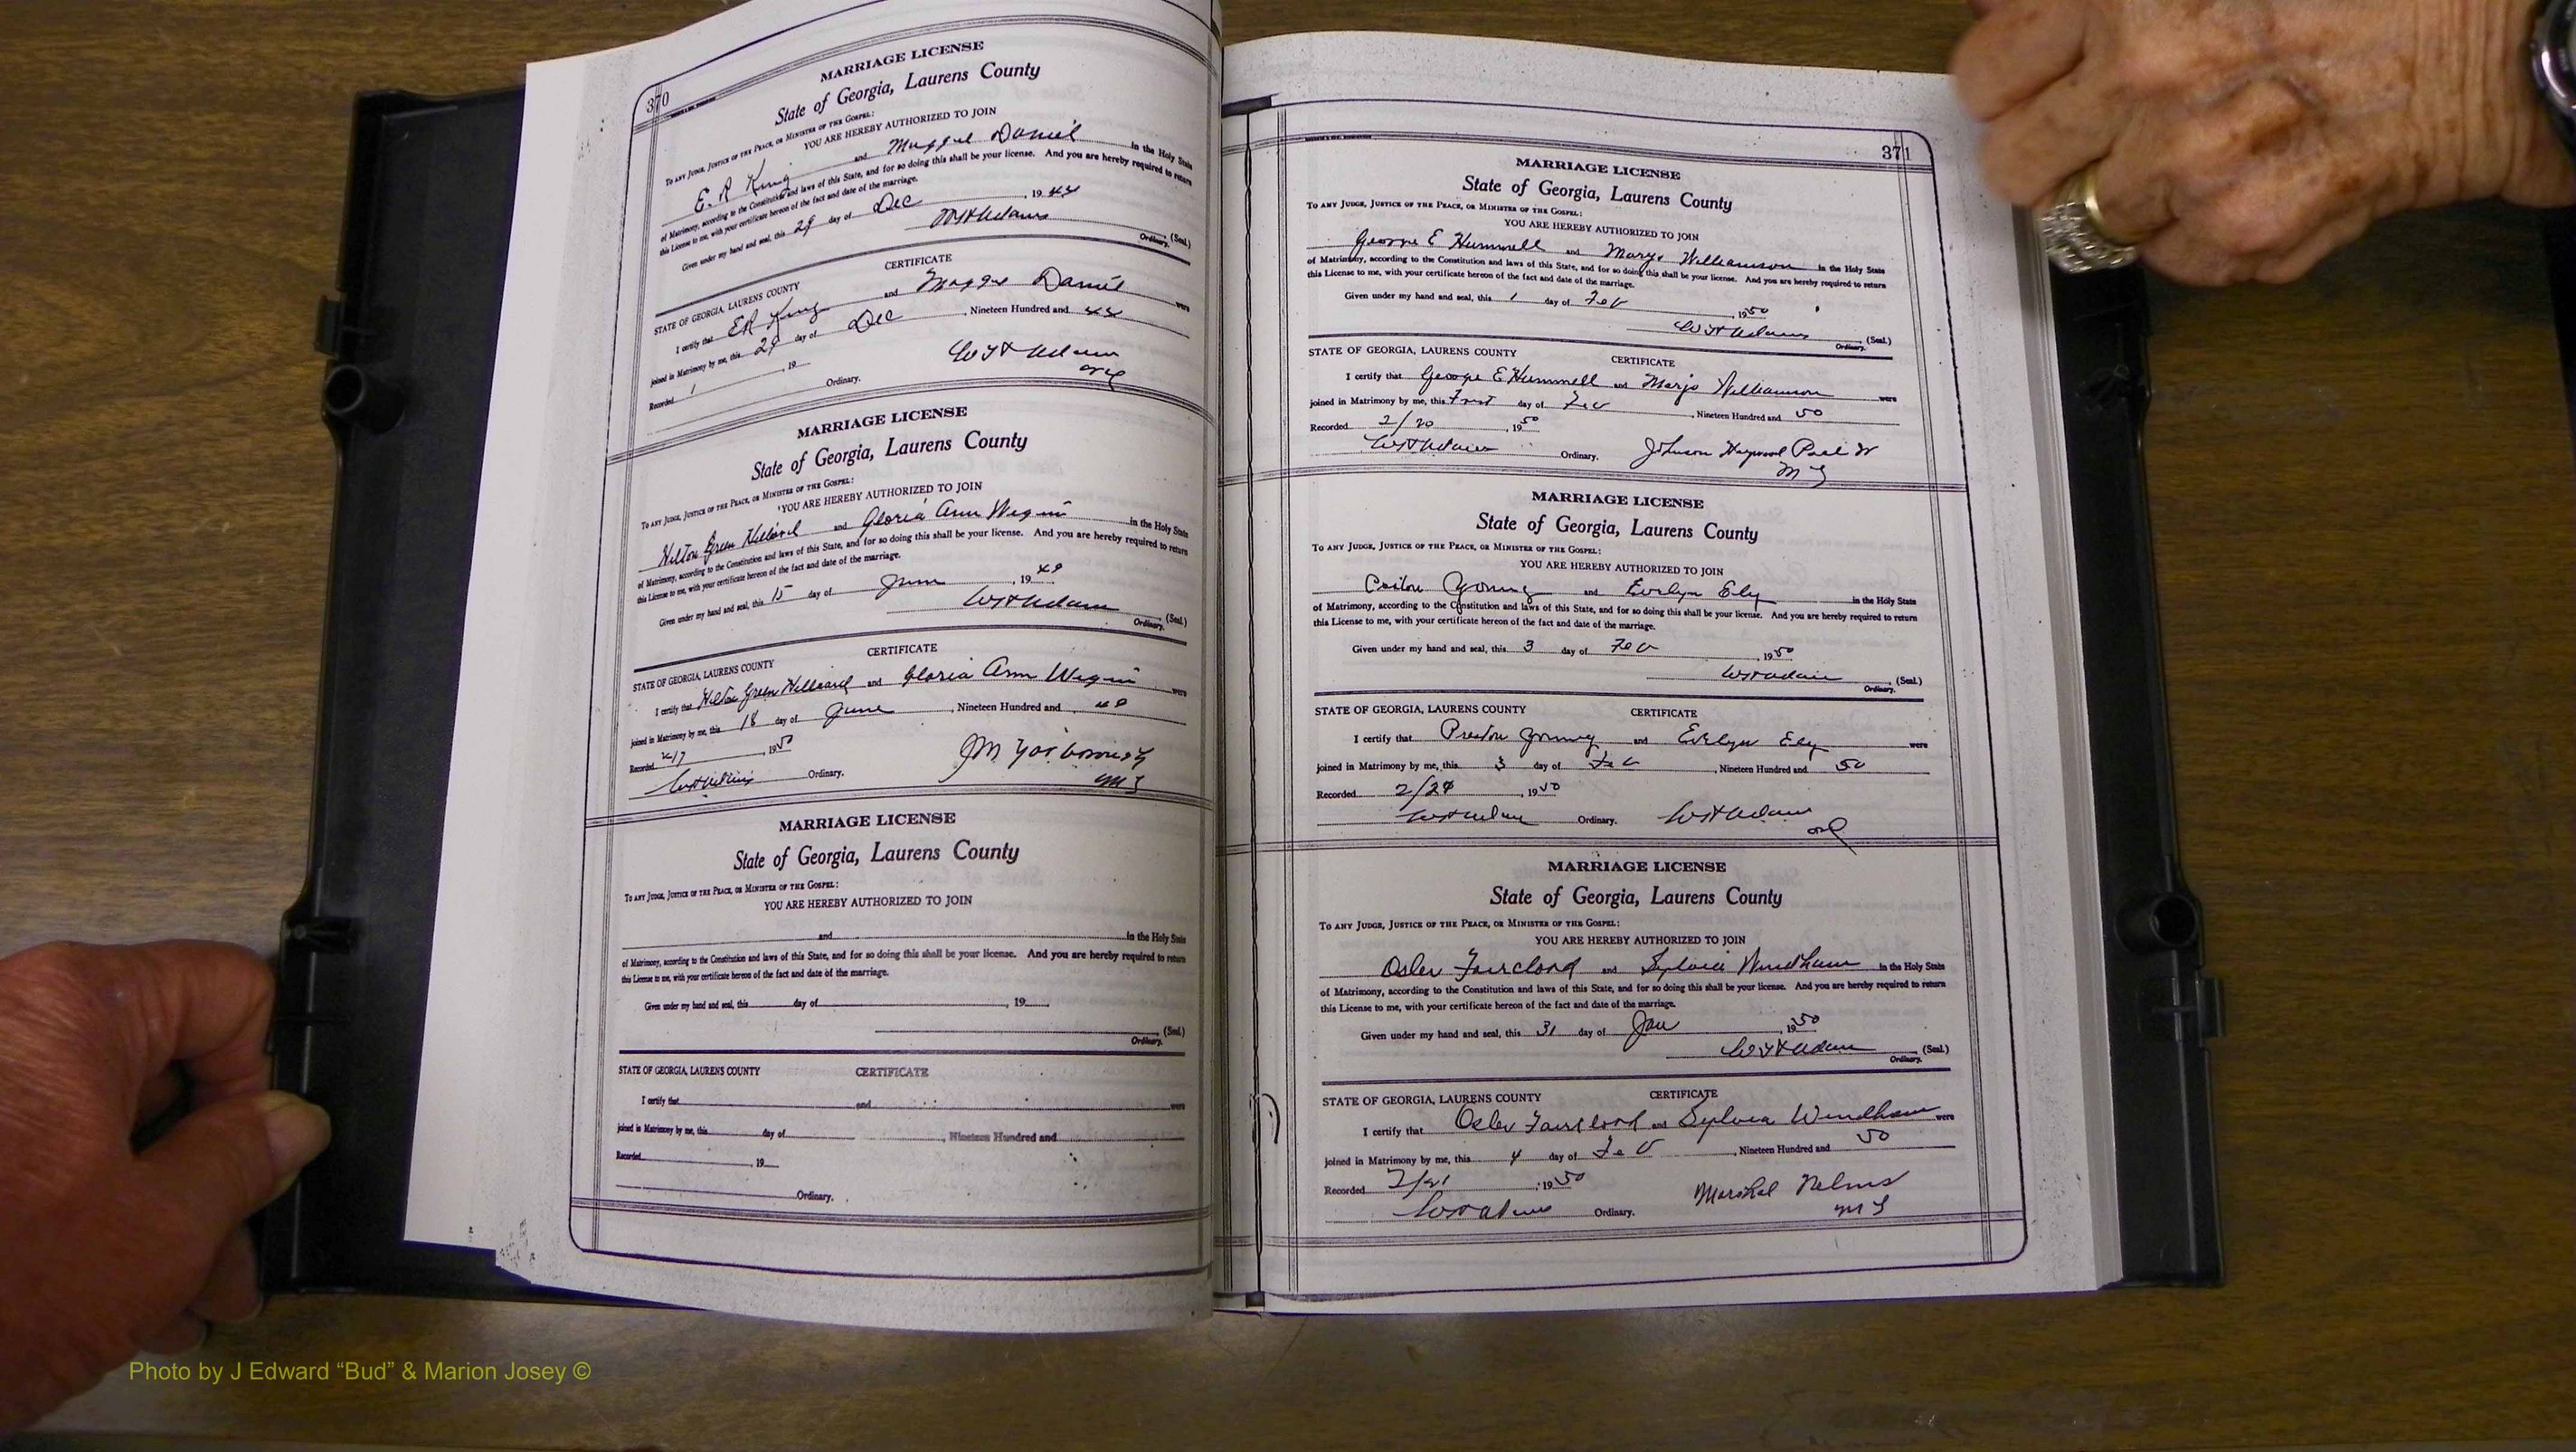 370
MARRIAGE LICENSE
State of Georgia, Laurens County
TO ANY JUDGE, JUSTICE OF THE PEACE, OR MINISTER OF THE GOSPEL:
YOU ARE HEREBY AUTHORIZED TO JOIN
E. R King and Daniel in the Holy State
of Matrimony, according to the Constitution and laws of this State, and for so doing this shall be your license. And you are hereby required to return
this License to me, with your certificate hereon of the fact and date of the marriage.
Given under my hand and seal, this 29 day of Dec, 1944
W H Adams (Seal.)
Ordinary.
CERTIFICATE
STATE OF GEORGIA, LAURENS COUNTY
I certify that ER King and Daniel were
joined in Matrimony by me, this 29 day of Dec, Nineteen Hundred and 44
Recorded, 19
Ordinary.
MARRIAGE LICENSE
State of Georgia, Laurens County
TO ANY JUDGE, JUSTICE OF THE PEACE, OR MINISTER OF THE GOSPEL:
YOU ARE HEREBY AUTHORIZED TO JOIN
Hilton Green and Gloria Ann in the Holy State
of Matrimony, according to the Constitution and laws of this State, and for so doing this shall be your license. And you are hereby required to return
this License to me, with your certificate hereon of the fact and date of the marriage.
Given under my hand and seal, this 15 day of June, 1949
W H Adams (Seal.)
Ordinary.
CERTIFICATE
STATE OF GEORGIA, LAURENS COUNTY
I certify that Hilton Green and Gloria Ann were
joined in Matrimony by me, this 18 day of June, Nineteen Hundred and 49
Recorded, 1950
Ordinary.
MARRIAGE LICENSE
State of Georgia, Laurens County
TO ANY JUDGE, JUSTICE OF THE PEACE, OR MINISTER OF THE GOSPEL:
YOU ARE HEREBY AUTHORIZED TO JOIN
and in the Holy State
of Matrimony, according to the Constitution and laws of this State, and for so doing this shall be your license. And you are hereby required to return
this License to me, with your certificate hereon of the fact and date of the marriage.
Given under my hand and seal, this day of, 19
(Seal.)
Ordinary.
STATE OF GEORGIA, LAURENS COUNTY CERTIFICATE
I certify that and were
joined in Matrimony by me, this day of, Nineteen Hundred and
Recorded, 19
Ordinary.
371
MARRIAGE LICENSE
State of Georgia, Laurens County
TO ANY JUDGE, JUSTICE OF THE PEACE, OR MINISTER OF THE GOSPEL:
YOU ARE HEREBY AUTHORIZED TO JOIN
George E Hummell and Marjo Williamson in the Holy State
of Matrimony, according to the Constitution and laws of this State, and for so doing this shall be your license. And you are hereby required to return
this License to me, with your certificate hereon of the fact and date of the marriage.
Given under my hand and seal, this 1 day of Feb, 1950
W H Adams (Seal.)
Ordinary.
STATE OF GEORGIA, LAURENS COUNTY CERTIFICATE
I certify that George E Hummell and Marjo Williamson were
joined in Matrimony by me, this First day of Feb, Nineteen Hundred and 50
Recorded 2/20, 1950
W H Adams Ordinary. Johnson
M G
MARRIAGE LICENSE
State of Georgia, Laurens County
TO ANY JUDGE, JUSTICE OF THE PEACE, OR MINISTER OF THE GOSPEL:
YOU ARE HEREBY AUTHORIZED TO JOIN
Preston Young and Evelyn Ely in the Holy State
of Matrimony, according to the Constitution and laws of this State, and for so doing this shall be your license. And you are hereby required to return
this License to me, with your certificate hereon of the fact and date of the marriage.
Given under my hand and seal, this 3 day of Feb, 1950
W H Adams (Seal.)
Ordinary.
STATE OF GEORGIA, LAURENS COUNTY CERTIFICATE
I certify that Preston Young and Evelyn Ely were
joined in Matrimony by me, this 3 day of Feb, Nineteen Hundred and 50
Recorded, 1950
W H Adams Ordinary. W H Adams
Ord
MARRIAGE LICENSE
State of Georgia, Laurens County
TO ANY JUDGE, JUSTICE OF THE PEACE, OR MINISTER OF THE GOSPEL:
YOU ARE HEREBY AUTHORIZED TO JOIN
Osler Faircloth and Sylvia Windham in the Holy State
of Matrimony, according to the Constitution and laws of this State, and for so doing this shall be your license. And you are hereby required to return
this License to me, with your certificate hereon of the fact and date of the marriage.
Given under my hand and seal, this 31 day of Jan, 1950
W H Adams (Seal.)
Ordinary.
STATE OF GEORGIA, LAURENS COUNTY CERTIFICATE
I certify that Osler Faircloth and Sylvia Windham were
joined in Matrimony by me, this 4 day of Feb, Nineteen Hundred and 50
Recorded 2/21, 1950
W H Adams Ordinary. Marshal Nelms
M G
Photo by J Edward “Bud” & Marion Josey ©